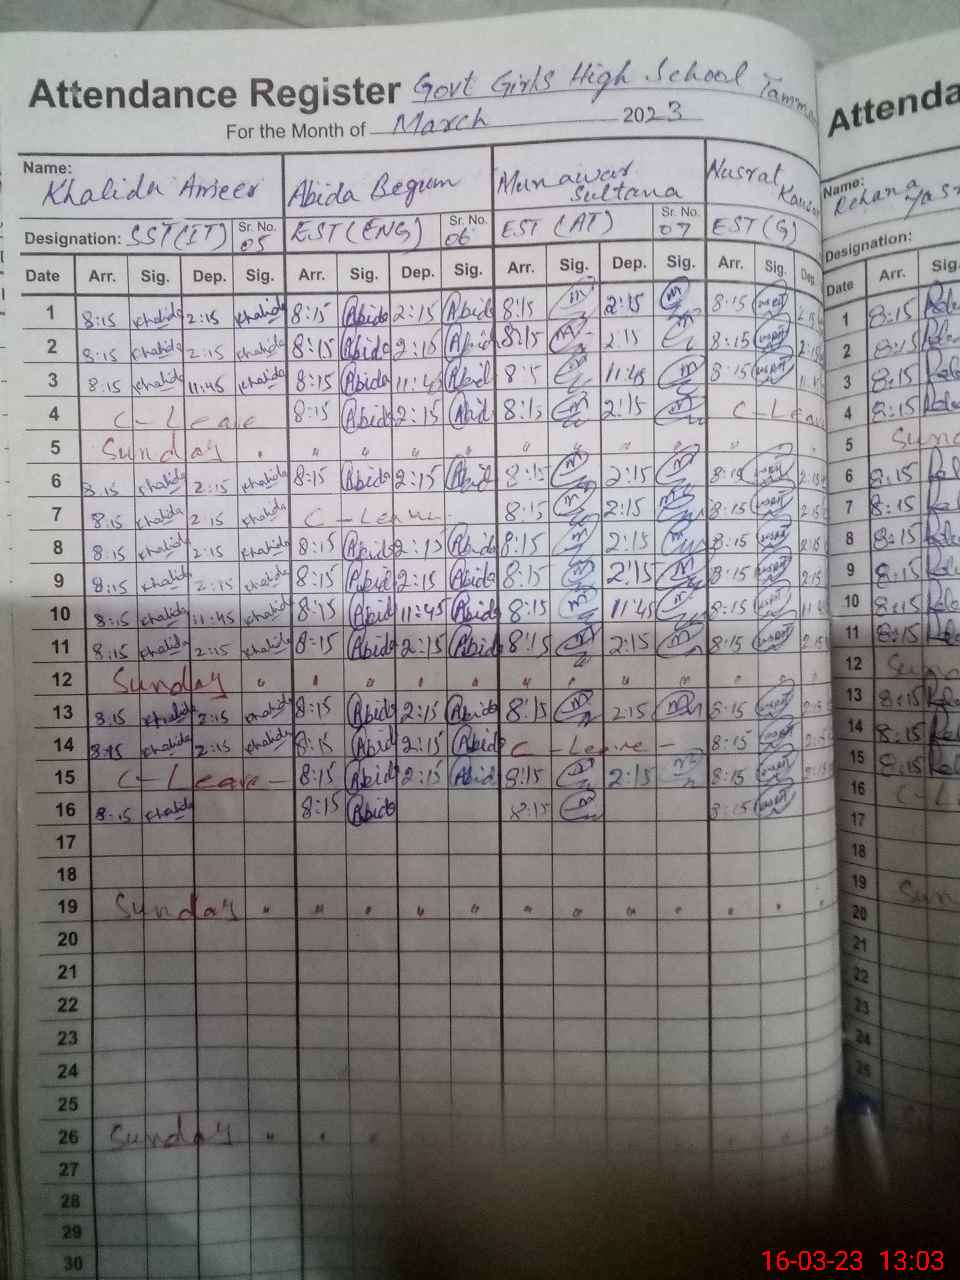 Attendance Register Govt Girls High School
For the Month of March 2023
Name: Khalida Ameer Abida Begum Munawar Sultana Nusrat
Designation: SST(IT) Sr. No. 05 EST(ENG) Sr. No. 06 EST (AT) Sr. No. 07 EST (G)
Date Arr. Sig. Dep. Sig. Arr. Sig. Dep. Sig. Arr. Sig. Dep. Sig. Arr. Sig. Dep
1 8:15 Khalida 2:15 Khalida 8:15 Abida 2:15 Abida 8:15 2:15 8:15
2 8:15 Khalida 2:15 Khalida 8:15 Abida 2:15 Abida 8:15 2:15 8:15
3 8:15 Khalida 11:45 Khalida 8:15 Abida 11:45 Abida 8:15 11:45 8:15
4 C-Leave 8:15 Abida 2:15 Abid 8:15 2:15 C-Leave
5 Sunday " " " " " " " " "
6 8:15 Khalida 2:15 Khalida 8:15 Abida 2:15 Abid 8:15 2:15 8:15
7 8:15 Khalida 2:15 Khalida C-Leave 8:15 2:15 8:15 2:15
8 8:15 Khalida 2:15 Khalida 8:15 Abida 2:15 Abida 8:15 2:15 8:15 2:15
9 8:15 Khalida 2:15 Khalida 8:15 Abid 2:15 Abida 8:15 2:15 8:15 2:15
10 8:15 Khalida 11:45 Khalida 8:15 Abid 11:45 Abida 8:15 11:45 8:15
11 8:15 Khalida 2:15 Khalida 8:15 Abida 2:15 Abida 8:15 2:15 8:15 2:15
12 Sunday " " " " " " " " " " "
13 8:15 Khalida 2:15 Khalida 8:15 Abida 2:15 Abida 8:15 2:15 8:15
14 8:15 Khalida 2:15 Khalida 8:15 Abid 2:15 Abida C-Leave - 8:15
15 C-Leave - 8:15 Abid 2:15 Abid 8:15 2:15 8:15
16 8:15 Khalida 8:15 Abida 8:15 8:15
17
18
19 Sunday " " " " " " " " " " "
20
21
22
23
24
25
26 Sunday " " "
27
28
29
30
Attenda
Name: Rehana
Designation:
Date Arr. Sig.
1 8:15
2 8:15
3 8:15
4 8:15
5 Sun
6 8:15
7 8:15
8 8:15
9 8:15
10 8:15
11 8:15
12 Sun
13 8:15
14 8:15
15 8:15
16 C-L
17
18
19 Sun
20
21
22
23
24
25
16-03-23 13:03